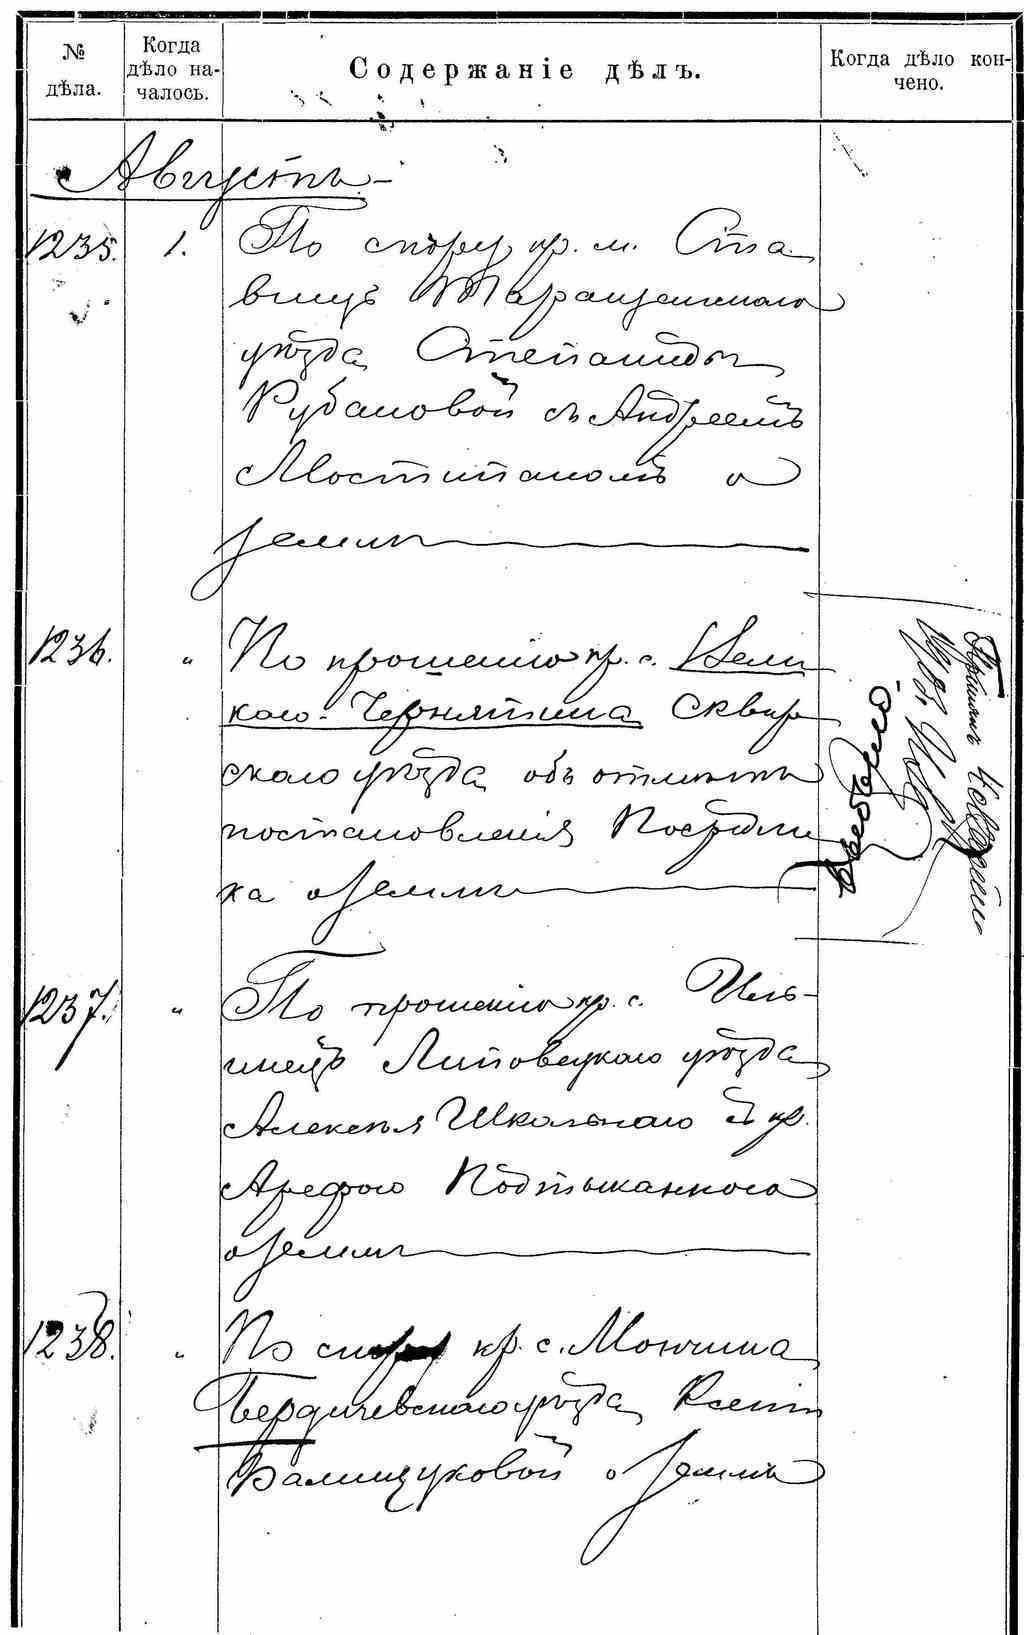 № дѣла.
Когда дѣло на-
чалось.
Содержаніе дѣлъ.
Когда дѣло кон-
чено.
Августъ
1235. 1. По спору кр. м. Ста
вищъ Таращанскаго
уѣзда Степаниды
Рубановой съ Андреемъ
Мостипаномъ о
землѣ
1236. " По прошенію кр. с. Вели
каго Чернятина Сквир
скаго уѣзда объ отмѣнѣ
постановленія Посредни
ка о землѣ
1237. " По прошенію кр. с. Иль-
инецъ Липовецкаго уѣзда
Алексѣя Школьнаго съ кр.
Арефою Подтыканного
о землѣ
1238. " По спору кр. с. Мончина
Бердичевскаго уѣзда Ксеніи
Балищуковой о землѣ